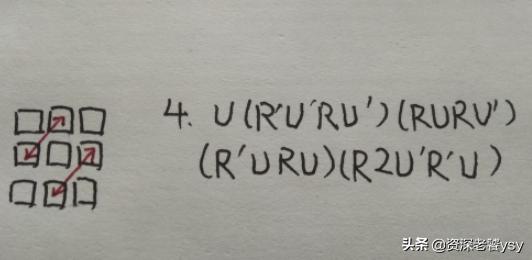 4. U(R'U'RU')(RURU')
(R'URU)(R2U'R'U)
头条 @资深老聱ysy